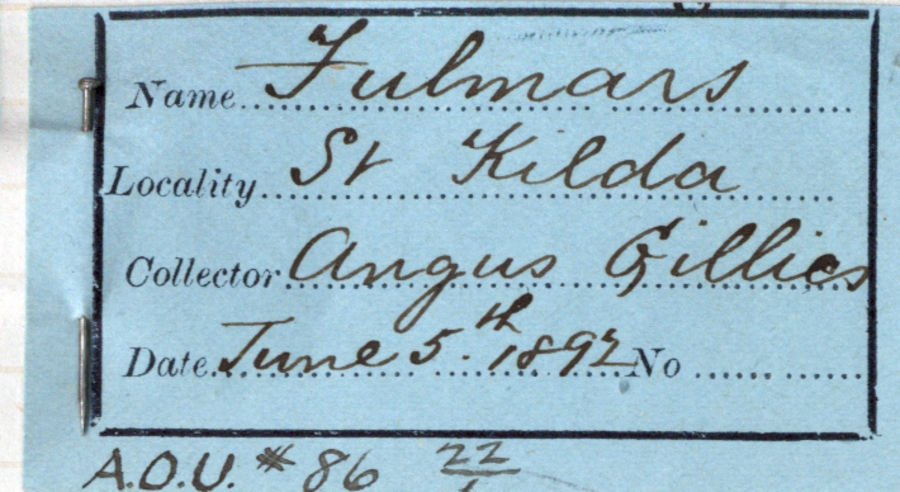 Name Fulmars
Locality St Kilda
Collector Angus Gillies
Date June 5.th 1892 No
A.O.U. # 86 22/1